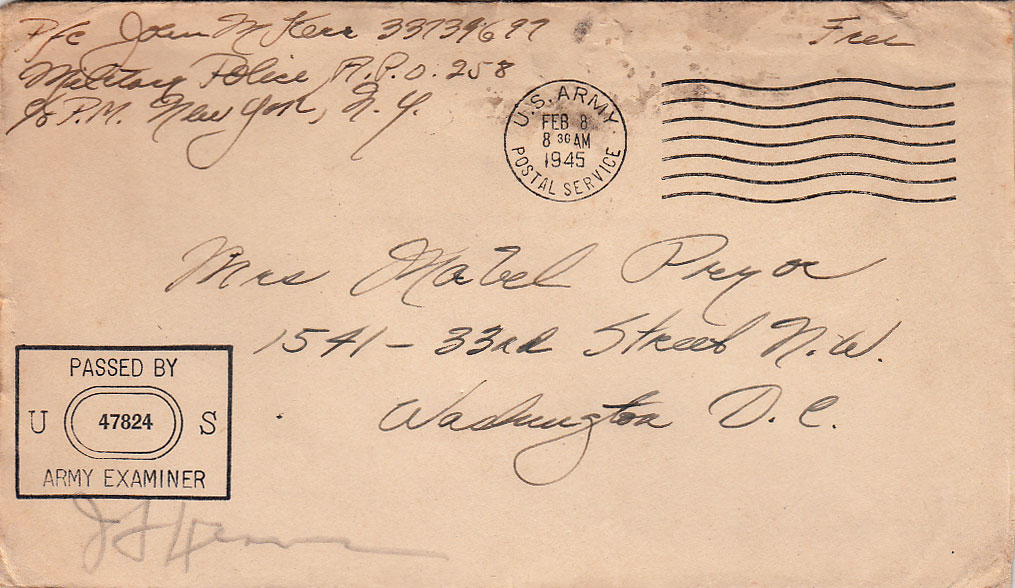 Pfc John M Kerr 33739697
Military Police, A.P.O. 258
c/o P.M. New York, N.Y.
Free
U.S. ARMY.
FEB 8
8 30 AM
1945
POSTAL SERVICE
Mrs Mabel Pryor
1541 - 33rd Street N.W.
Washington D.C.
PASSED BY
U 47824 S
ARMY EXAMINER